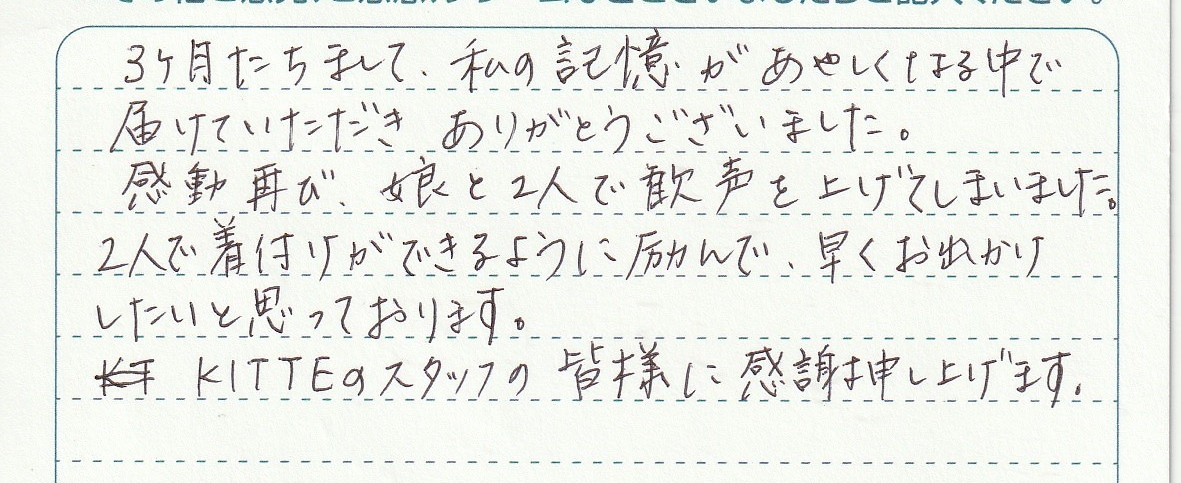 3ヶ月たちまして、私の記憶があやしくなる中で
届けていただき ありがとうございました。
感動再び、娘と2人で歓声を上げてしまいました。
2人で着付けができるように励んで、早くお出かけ
したいと思っております。
KITTEのスタッフの皆様に感謝申し上げます。